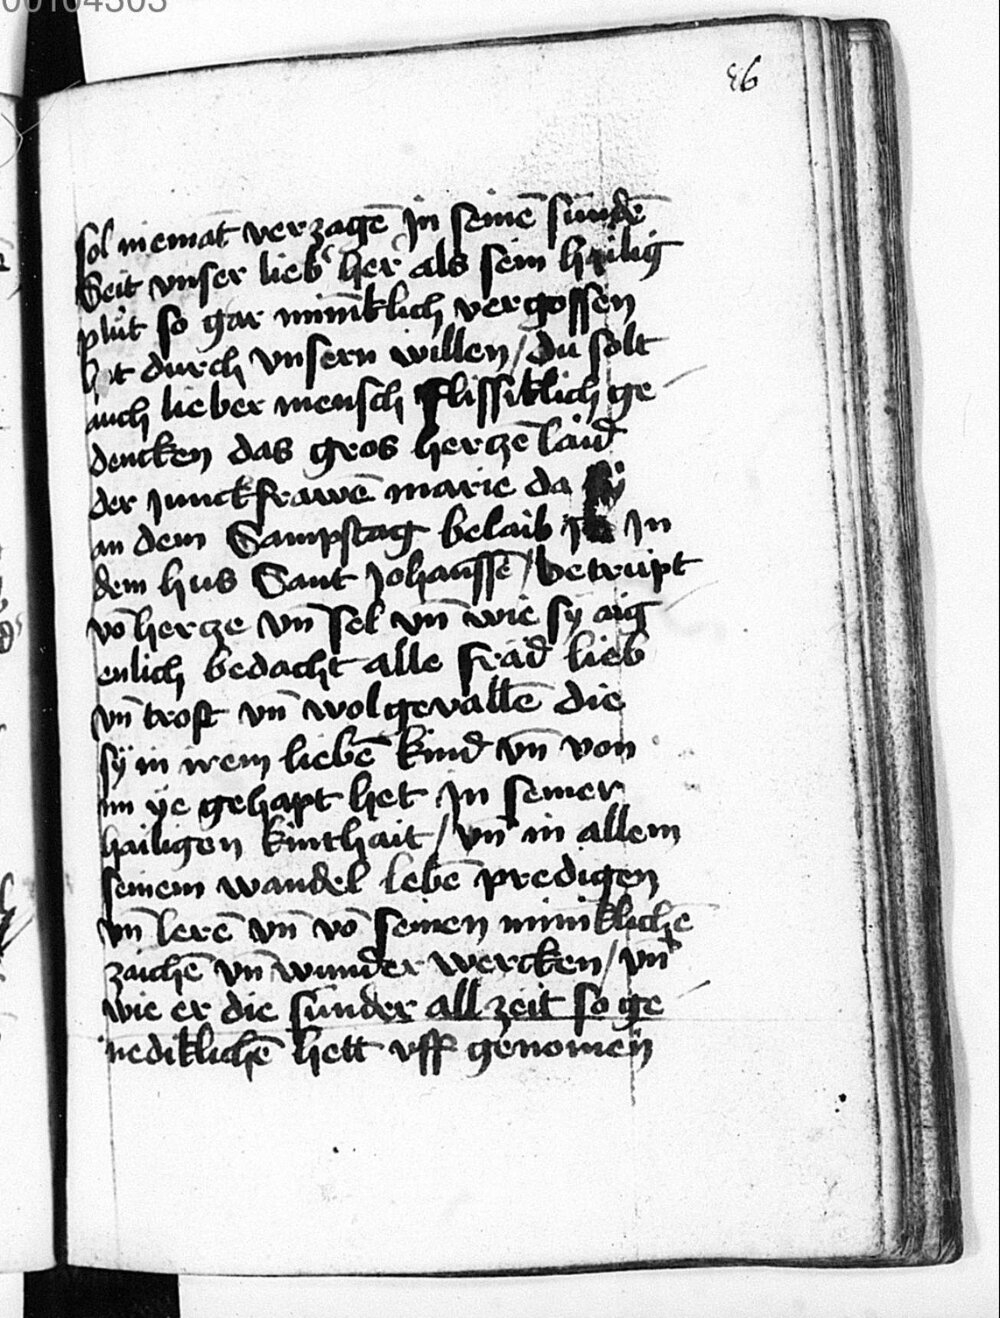 00104303
86
sol niemat verzagē Jn seinē sundē
Seit vnser lieb her als sein hailig
plůt so gar miniklich vergossen
hat durch vnsern willen / du solt
auch lieber mensch flissiklich ge
dencken das gros hercze laid
der Junckfrawē marie da sÿ
an dem Sampstag belaib Jn
dem hus Sant Johanssē / betrüpt
vō hercze vn̄ sel vn̄ wie sÿ aig
enlich bedacht alle fräd lieb
vn̄ trost vn̄ wolgevallē die
sÿ in irem liebē kind vn̄ von
im ye gehapt het Jn seiner
hailigen kinthait / vn̄ in allem
seinem wandel lebē predigen
vn̄ lerē vn̄ vō seinen miniklichē
zaichē vn̄ wunder wercken / vn̄
wie er die sunder allzeit so ge
nediklichē hett vff genomen